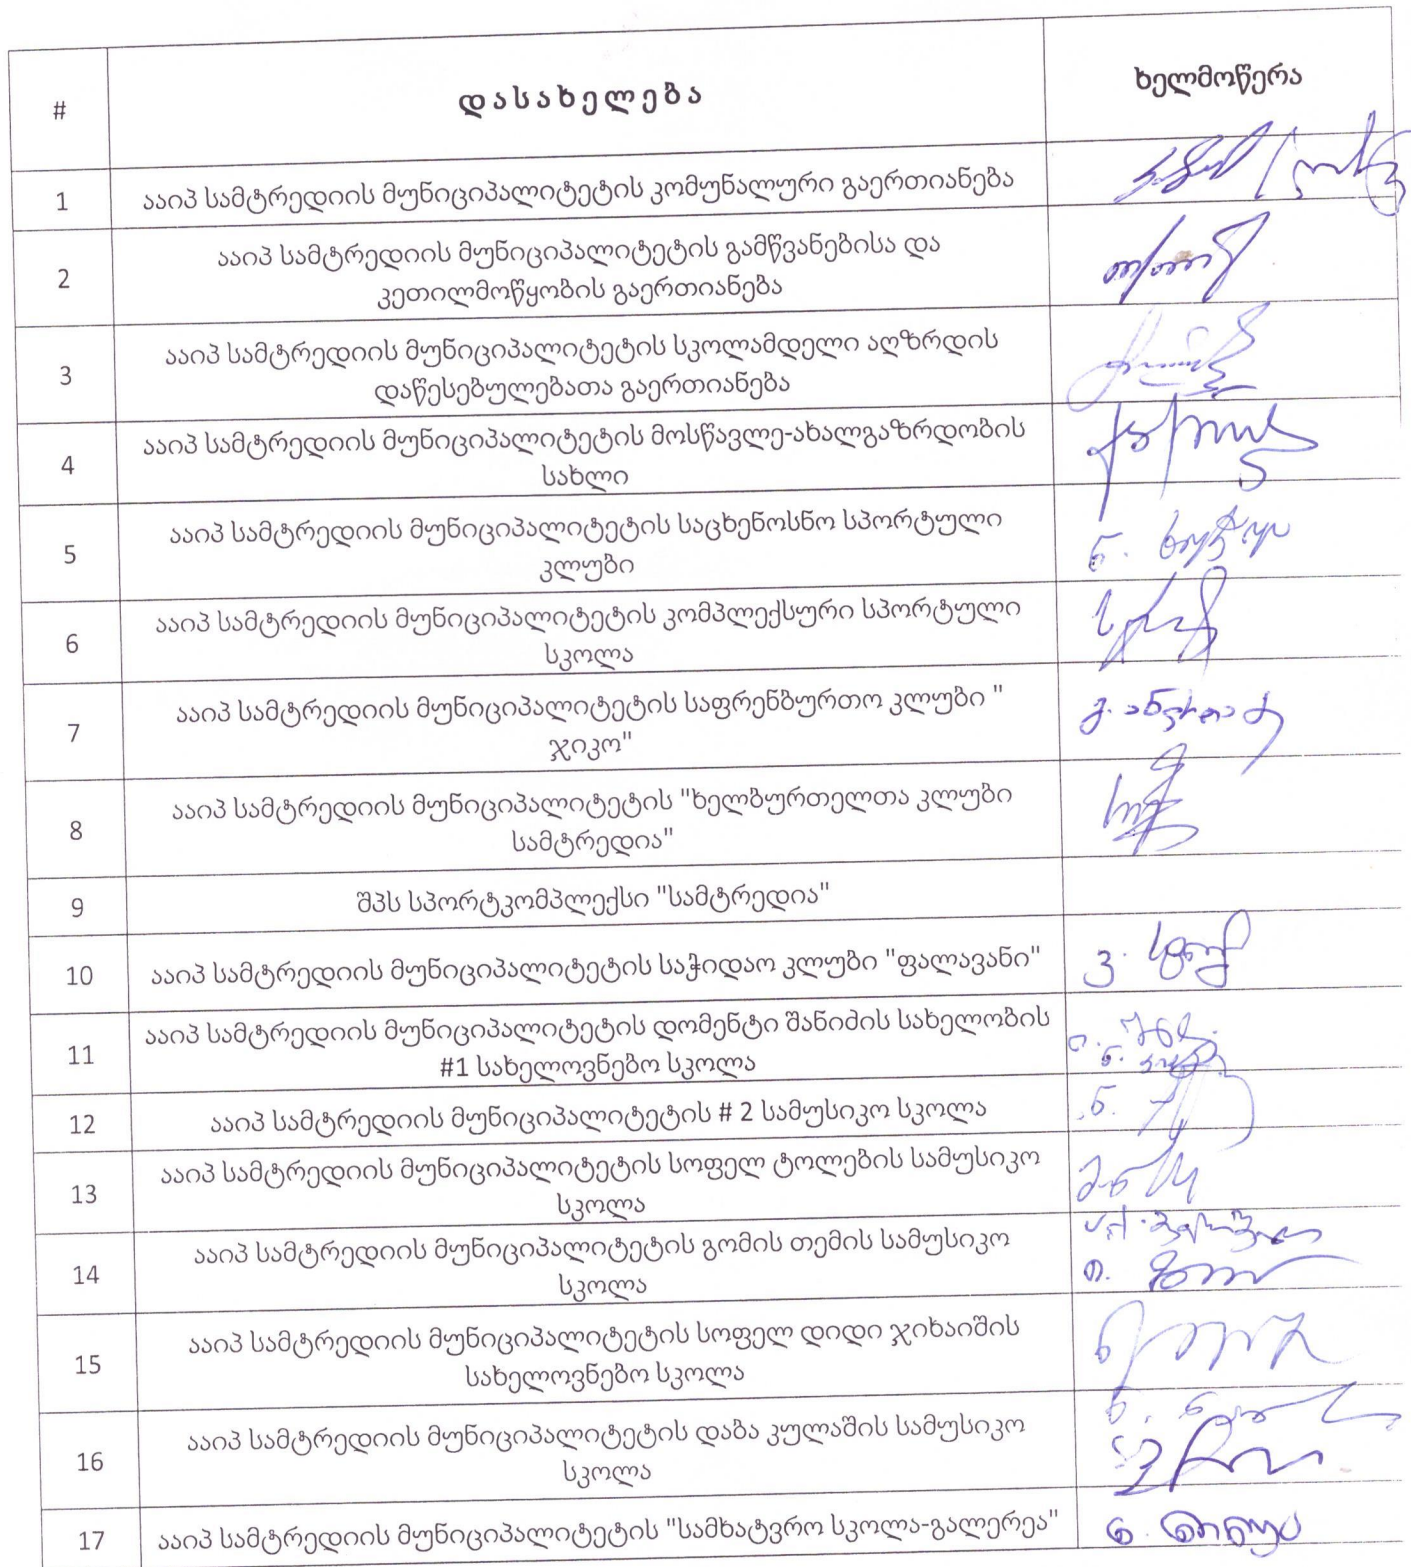 # დასახელება ხელმოწერა
1 ააიპ სამტრედიის მუნიციპალიტეტის კომუნალური გაერთიანება
2 ააიპ სამტრედიის მუნიციპალიტეტის გამწვანებისა და
კეთილმოწყობის გაერთიანება
3 ააიპ სამტრედიის მუნიციპალიტეტის სკოლამდელი აღზრდის
დაწესებულებათა გაერთიანება
4 ააიპ სამტრედიის მუნიციპალიტეტის მოსწავლე-ახალგაზრდობის
სახლი
5 ააიპ სამტრედიის მუნიციპალიტეტის საცხენოსნო სპორტული
კლუბი
6 ააიპ სამტრედიის მუნიციპალიტეტის კომპლექსური სპორტული
სკოლა
7 ააიპ სამტრედიის მუნიციპალიტეტის საფრენბურთო კლუბი "
ჯიკო"
8 ააიპ სამტრედიის მუნიციპალიტეტის "ხელბურთელთა კლუბი
სამტრედია"
9 შპს სპორტკომპლექსი "სამტრედია"
10 ააიპ სამტრედიის მუნიციპალიტეტის საჭიდაო კლუბი "ფალავანი"
11 ააიპ სამტრედიის მუნიციპალიტეტის დომენტი შანიძის სახელობის
#1 სახელოვნებო სკოლა
12 ააიპ სამტრედიის მუნიციპალიტეტის # 2 სამუსიკო სკოლა
13 ააიპ სამტრედიის მუნიციპალიტეტის სოფელ ტოლების სამუსიკო
სკოლა
14 ააიპ სამტრედიის მუნიციპალიტეტის გომის თემის სამუსიკო
სკოლა
15 ააიპ სამტრედიის მუნიციპალიტეტის სოფელ დიდი ჯიხაიშის
სახელოვნებო სკოლა
16 ააიპ სამტრედიის მუნიციპალიტეტის დაბა კულაშის სამუსიკო
სკოლა
17 ააიპ სამტრედიის მუნიციპალიტეტის "სამხატვრო სკოლა-გალერეა"